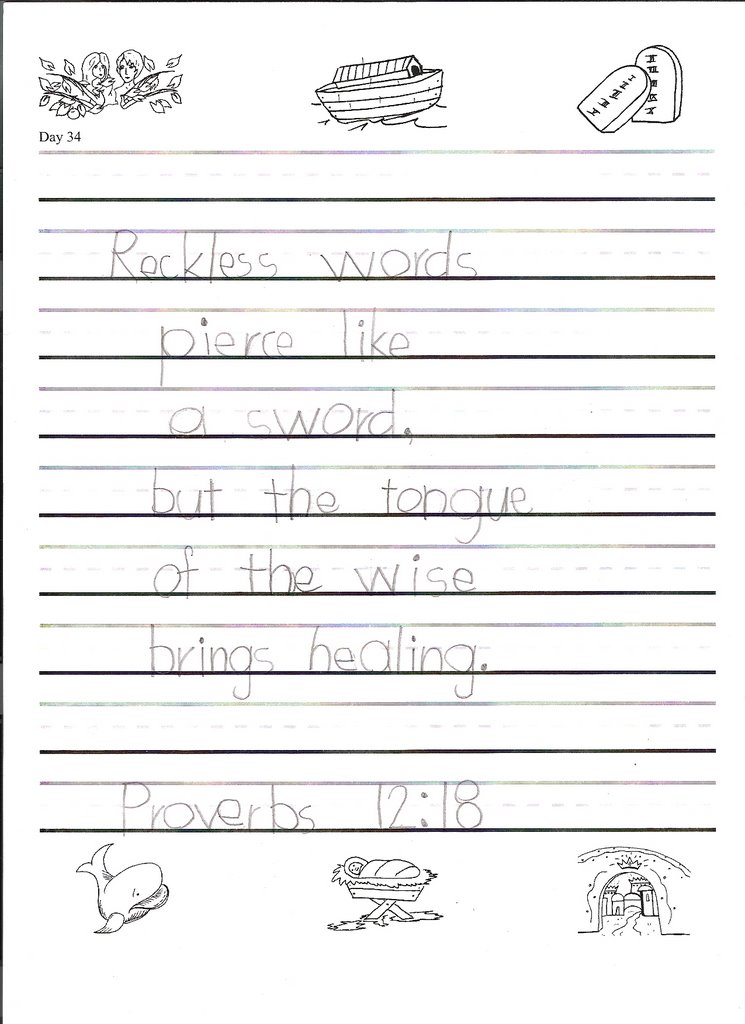 Day 34
Reckless words
pierce like
a sword,
but the tongue
of the wise
brings healing.
Proverbs 12:18